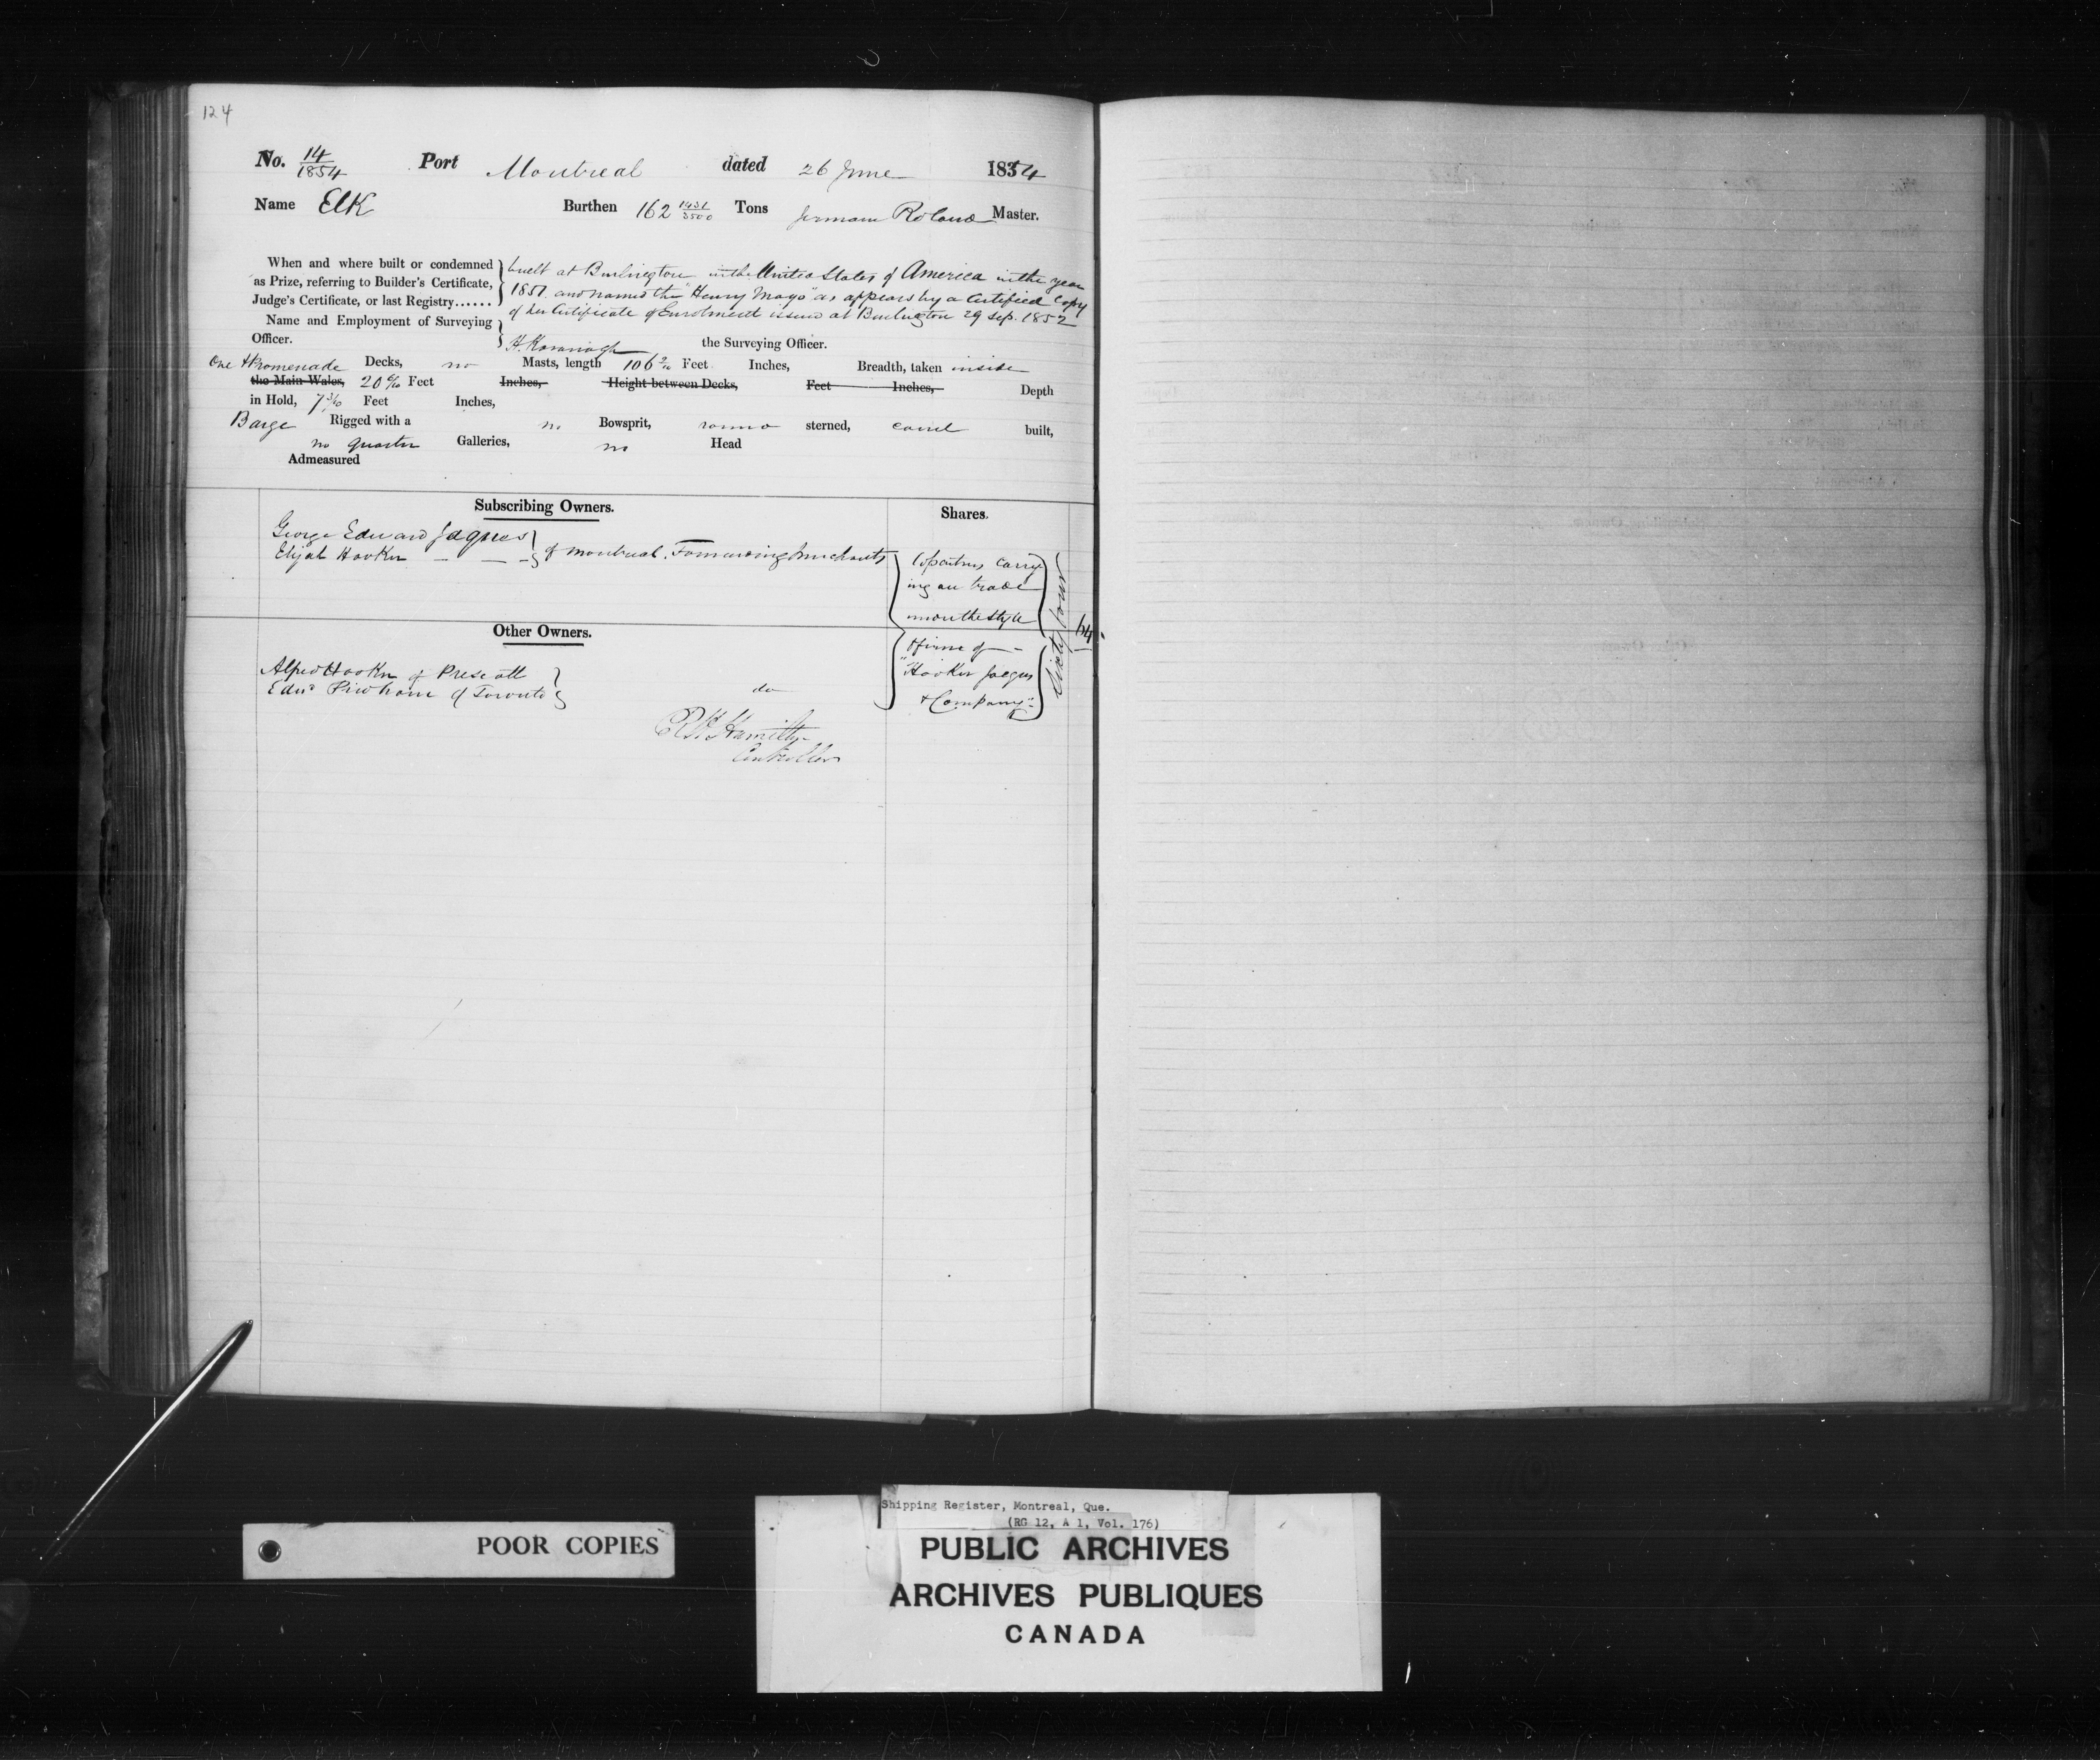 124
No. 14/1854 Port Montreal dated 26 June 1854
Name Elk Burthen 162 1431/3500 Tons Germain Roland Master.
When and where built or condemned
as Prize, referring to Builder's Certificate,
Judge's Certificate, or last Registry......
built at Burlington in the United States of America in the year
1851. and named the "Henry Mayo" as appears by a Certified Copy
of her Certificate of Enrolment issued at Burlington 29 Sep. 1852
Name and Employment of Surveying
Officer. H. Kavanagh the Surveying Officer.
One & Promenade Decks, no Masts, length 106 2/10 Feet Inches, Breadth, taken inside
the Main Wales, 20 6/10 Feet Inches, Height between Decks, Feet Inches, Depth
in Hold, 7 3/10 Feet Inches,
Barge Rigged with a no Bowsprit, round sterned, carvel built,
no quarter Galleries, no Head
Admeasured
Subscribing Owners. Shares.
George Edward Jaques
Elijah Hooker
of Montreal. Forwarding Merchants
Copartners carry
ing on trade
under the style
& firm of
"Hooker Jaques
& Company"
Sixty four
64.
Other Owners.
Alfred Hooker of Prescott
Edwd. Pinkham of Toronto
do
R H Hamilton
Controller
POOR COPIES
Shipping Register, Montreal, Que.
(RG 12, A 1, Vol. 176)
PUBLIC ARCHIVES
ARCHIVES PUBLIQUES
CANADA